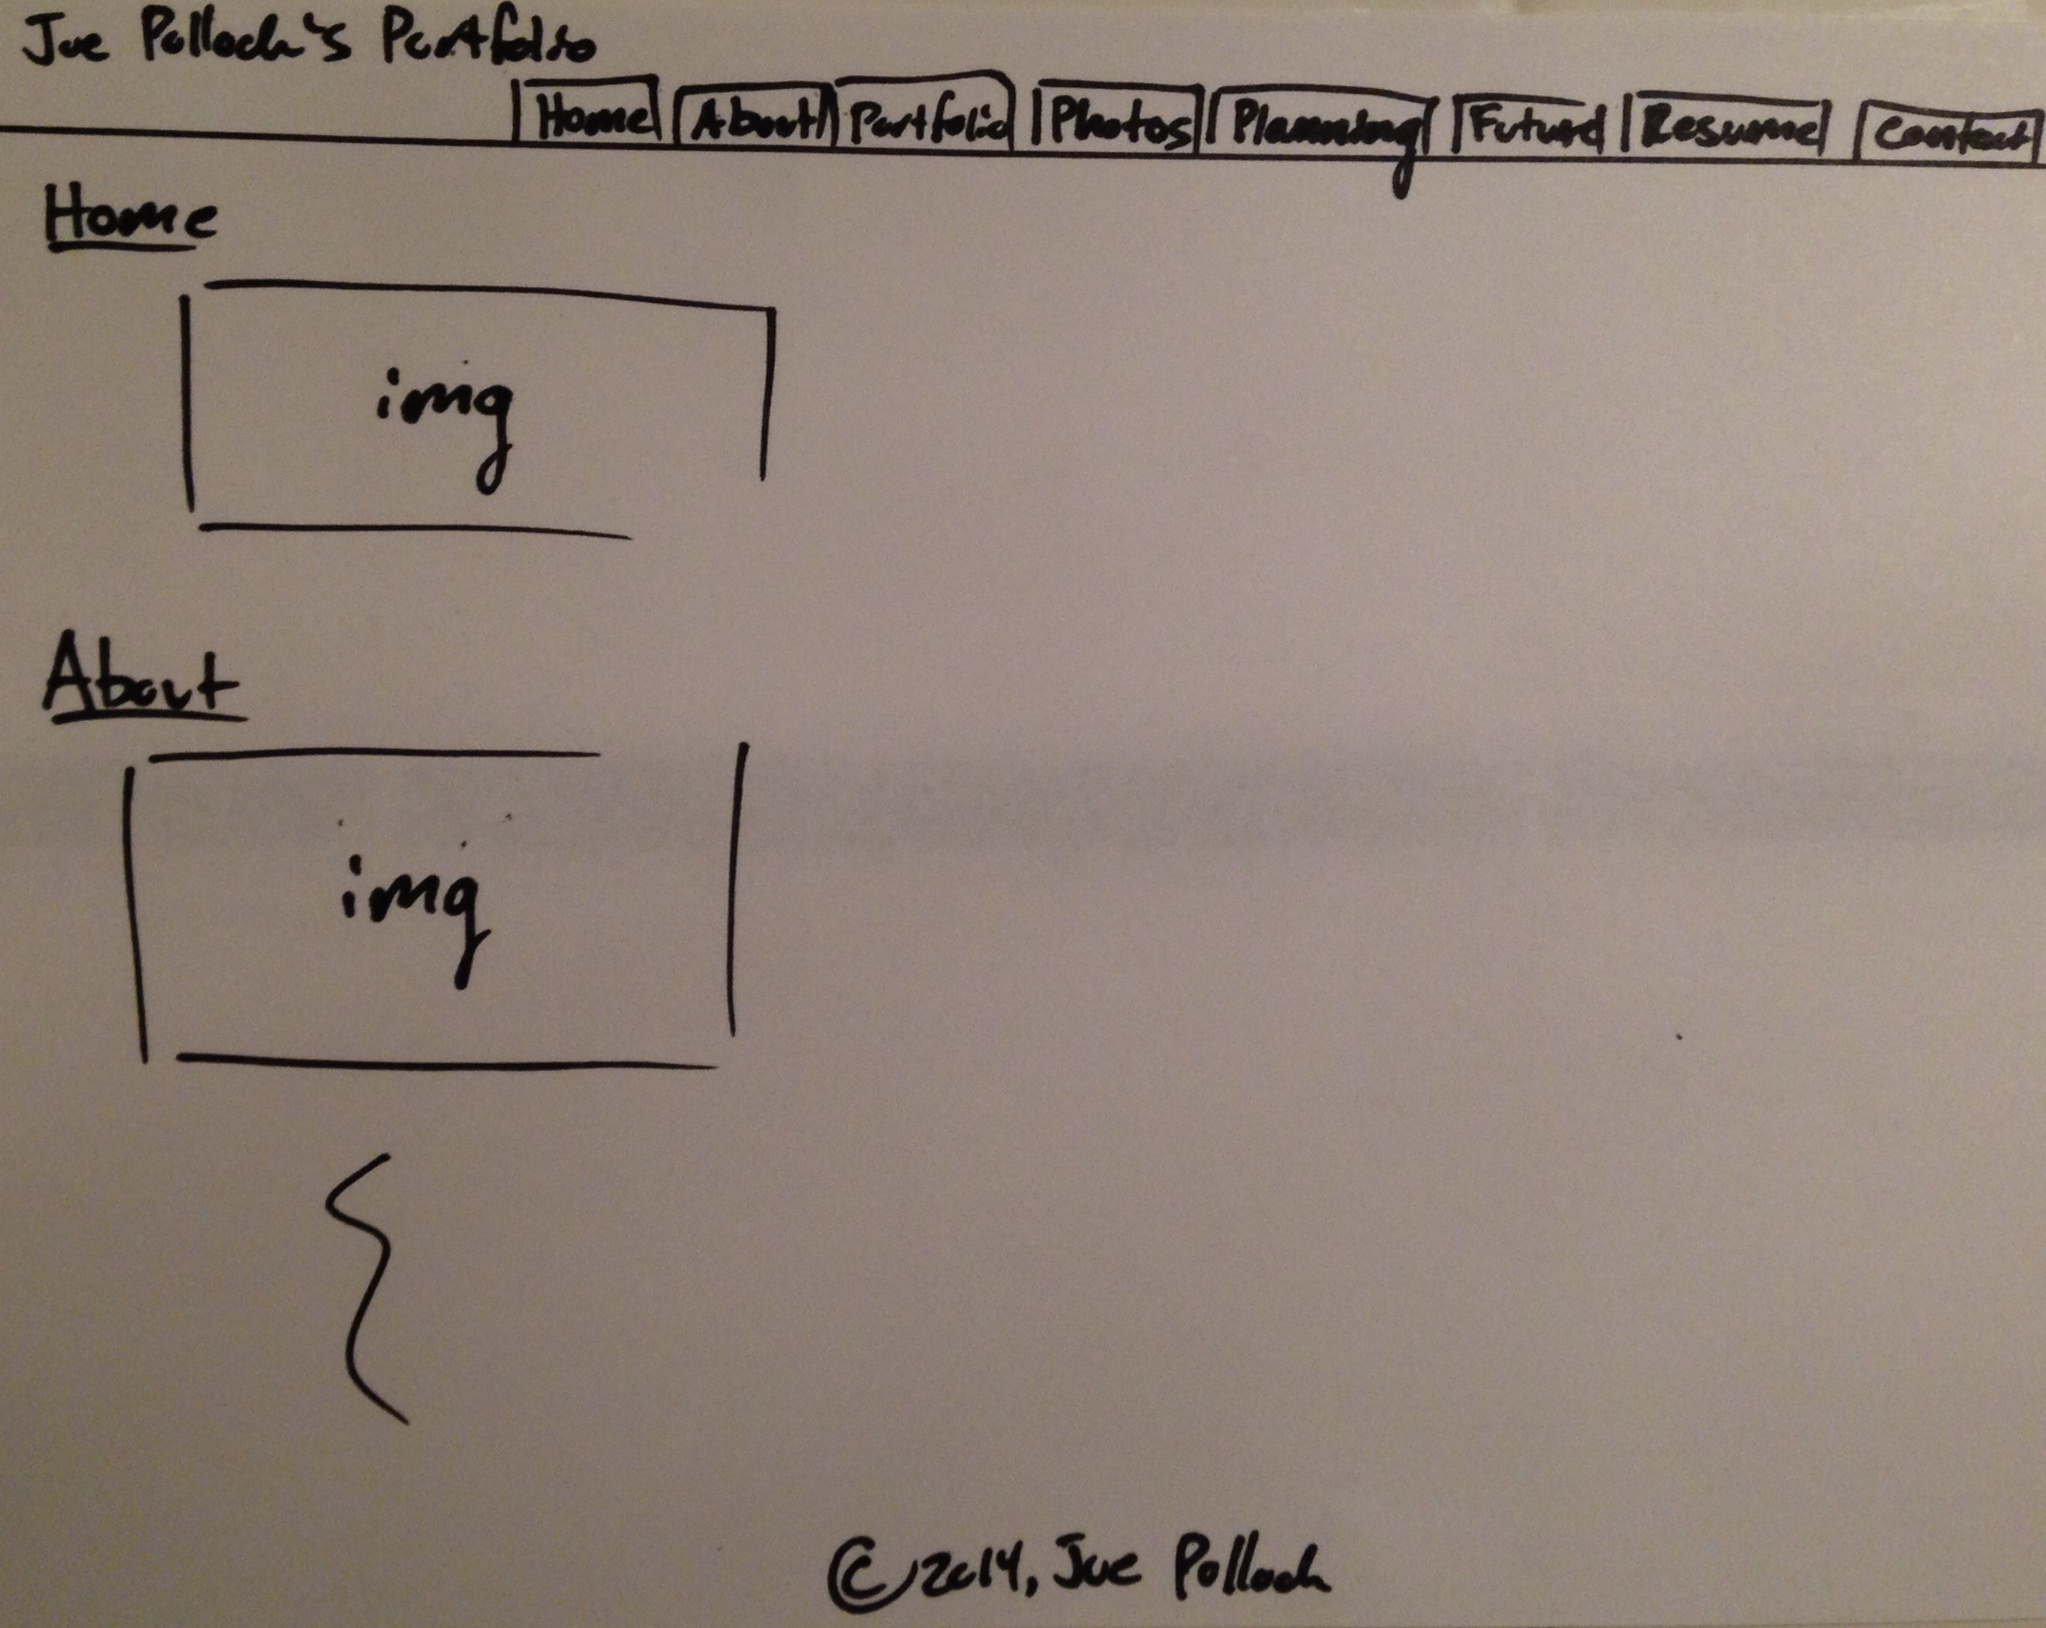 Joe Pollock's Portfolio
Home About Portfolio Photos Planning Future Resume Contact
Home
img
About
img
©2014, Joe Pollock